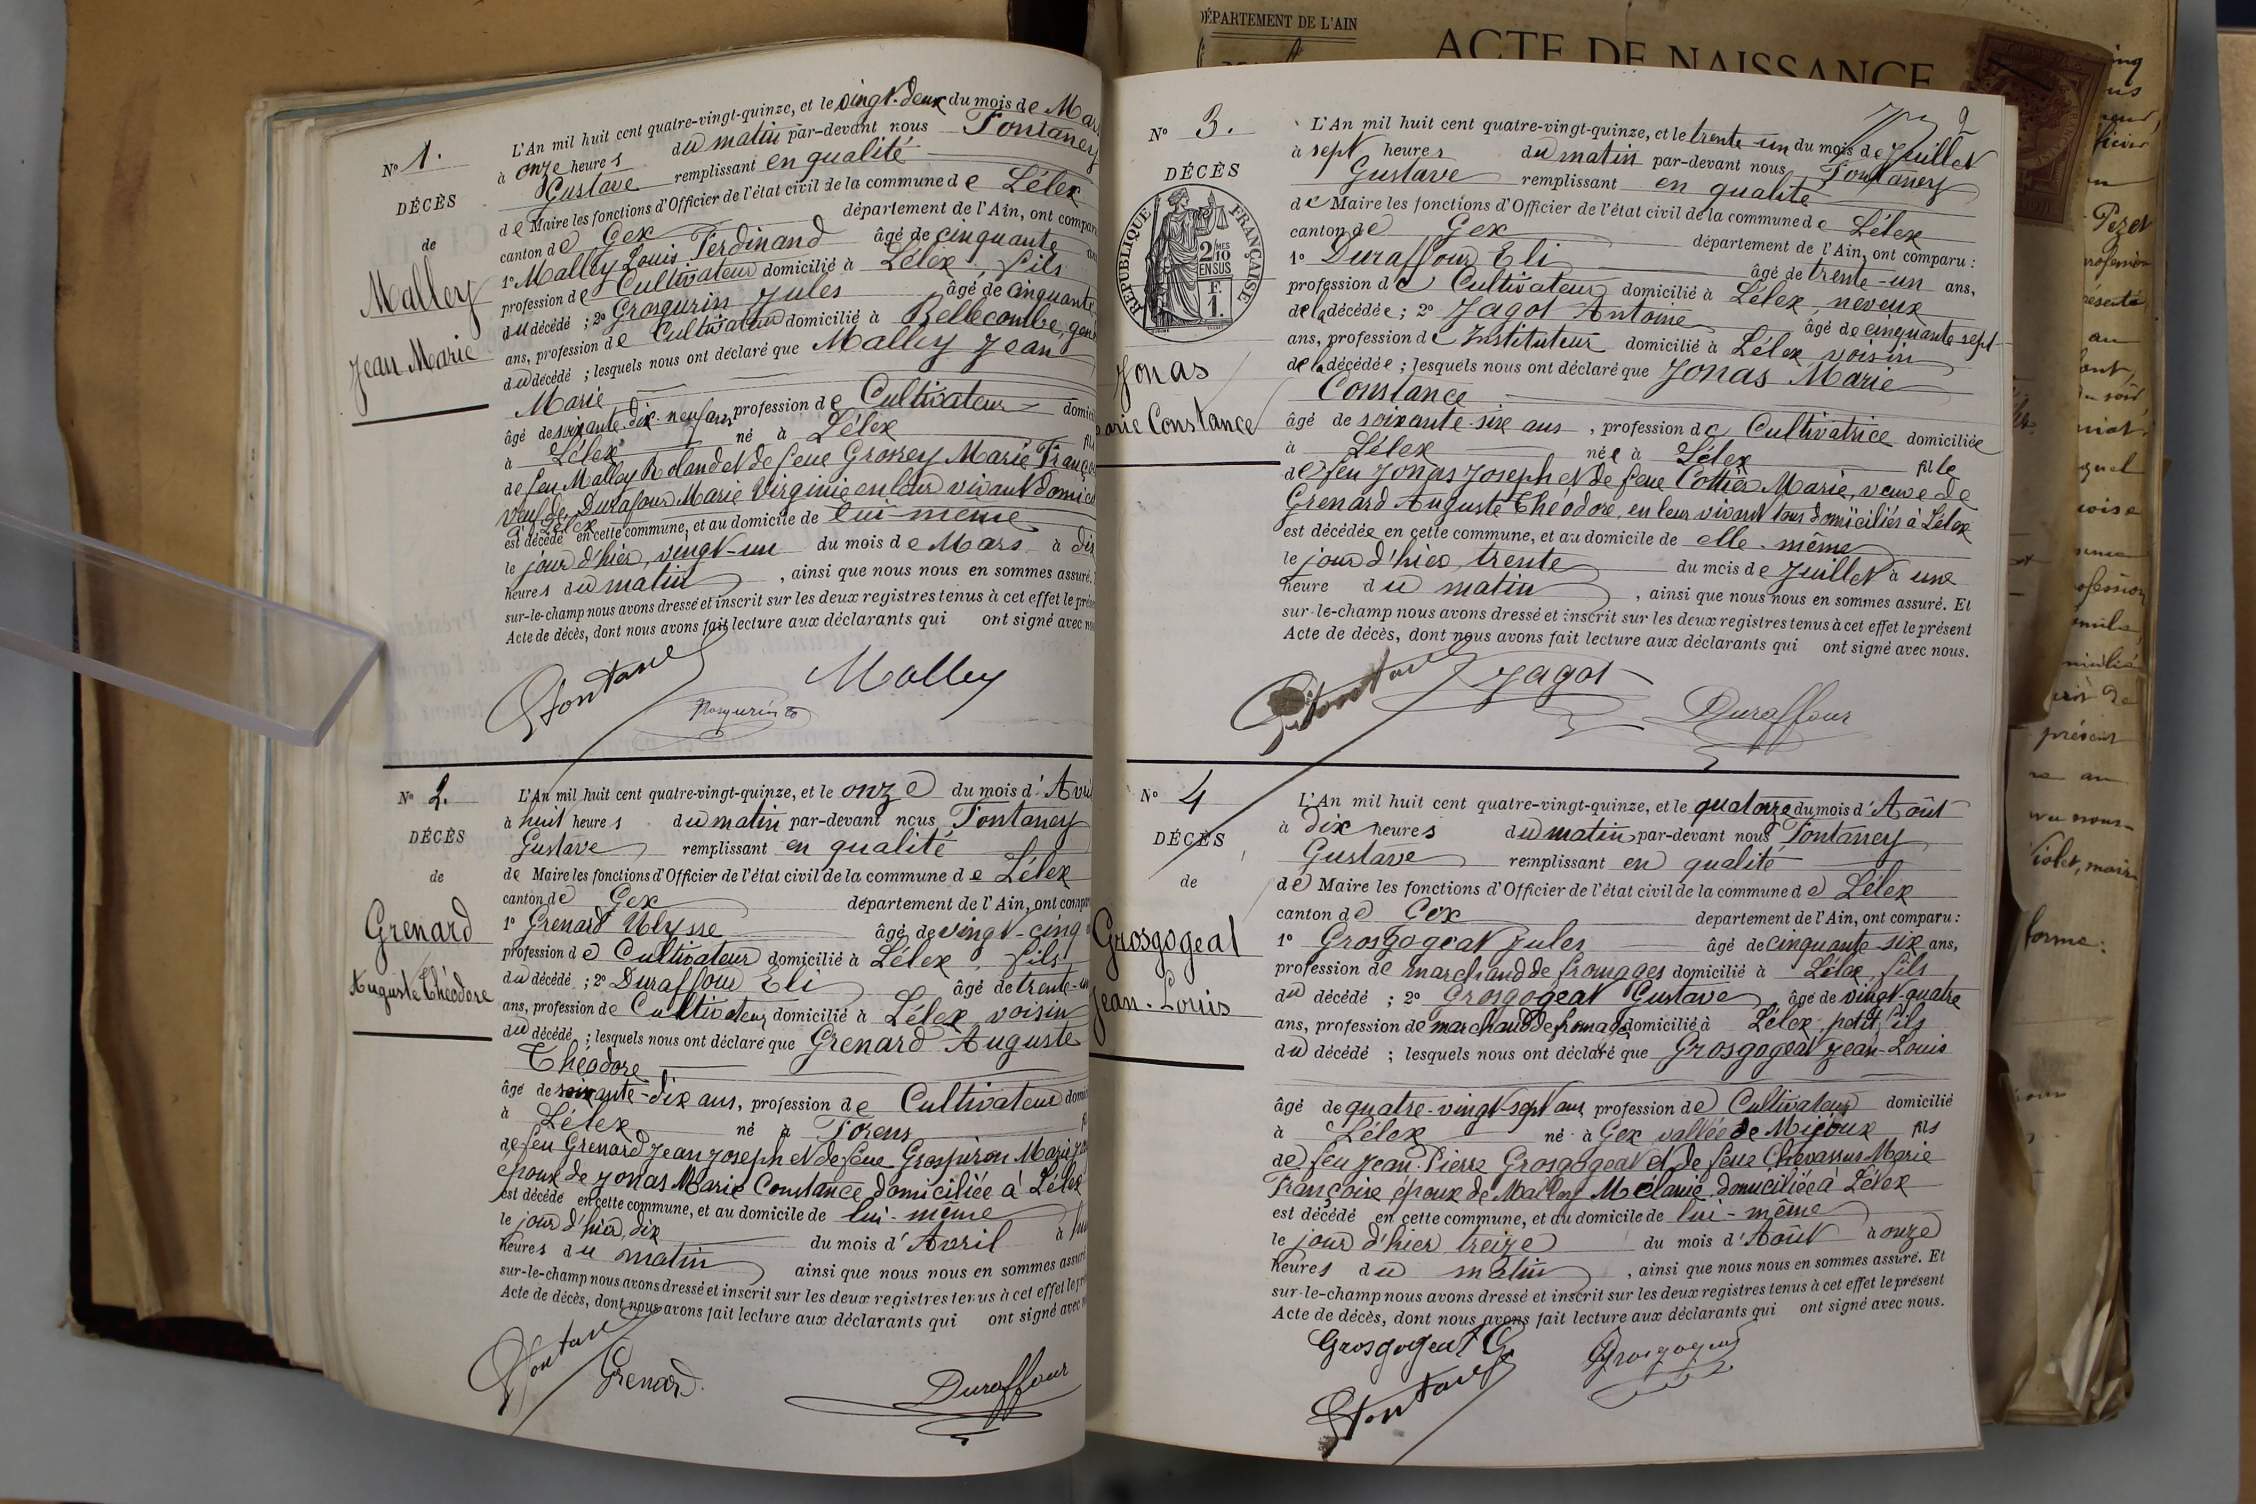 N° 1.
DÉCÈS
de
Malley
Jean Marie
L'An mil huit cent quatre-vingt-quinze, et le vingt-deux du mois de Mar
à onze heures du matin par-devant nous Fontaney
Gustave remplissant en qualité
de Maire les fonctions d'Officier de l'état civil de la commune de Lélex
canton de Gex département de l'Ain, ont compar
1° Malley Louis Ferdinand âgé de cinquante
profession de Cultivateur domicilié à Lélex, fils
du décédé ; 2° Grosgurin Jules âgé de cinquante
ans, profession de Cultivateur domicilié à Bellecombe, gen
du décédé ; lesquels nous ont déclaré que Malley Jean
Marie
âgé de soixante-dix-neuf ans, profession de Cultivateur domici
à Lélex né à Lélex fil
de feu Malley Roland et de feue Grossey Marie França
veuf de Durafour Marie Virginie en leur vivant domici
à Lélex
est décédé en cette commune, et au domicile de lui-même
le jour d'hier, vingt-un du mois de Mars à dix
heures du matin, ainsi que nous nous en sommes assuré.
sur-le-champ nous avons dressé et inscrit sur les deux registres tenus à cet effet le prése
Acte de décès, dont nous avons fait lecture aux déclarants qui ont signé avec no
Gfontaney
Grosgurin
Malley
N° 2.
DÉCÈS
de
Grenard
Auguste Théodore
L'An mil huit cent quatre-vingt-quinze, et le onze du mois d'Avri
à huit heures du matin par-devant nous Fontaney
Gustave remplissant en qualité
de Maire les fonctions d'Officier de l'état civil de la commune de Lélex
canton de Gex département de l'Ain, ont compr
1° Grenard Ulysse âgé de vingt-cinq
profession de Cultivateur domicilié à Lélex, fils
du décédé ; 2° Duraffour Eli âgé de trente-un
ans, profession de Cultivateur domicilié à Lélex, voisin
du décédé ; lesquels nous ont déclaré que Grenard Auguste
Théodore
âgé de soixante-dix ans, profession de Cultivateur domi
à Lélex né à Forens f
de feu Grenard Jean Joseph et de feue Grospiron Marie
époux de Jonas Marie Constance domiciliée à Lélex
est décédé en cette commune, et au domicile de lui-même
le jour d'hier, dix du mois d'Avril à
heures du matin ainsi que nous nous en sommes assuré
sur-le-champ nous avons dressé et inscrit sur les deux registres tenus à cet effet le pr
Acte de décès, dont nous avons fait lecture aux déclarants qui ont signé avec n
Gfontaney
Grenard.
Duraffour
DÉPARTEMENT DE L'AIN
ACTE DE NAISSANCE
2
N° 3.
DÉCÈS
RÉPUBLIQUE FRANÇAISE
2/10 MES
EN SUS
F.
1.
Jonas
arie Constance
L'An mil huit cent quatre-vingt-quinze, et le trente-un du mois de Juillet
à sept heures du matin par-devant nous Fontaney
Gustave remplissant en qualité
de Maire les fonctions d'Officier de l'état civil de la commune de Lélex
canton de Gex département de l'Ain, ont comparu :
1° Duraffour Eli âgé de trente-un ans,
profession de Cultivateur domicilié à Lélex, neveux
de la décédée ; 2° Jagot Antoine âgé de cinquante sept
ans, profession de Instituteur domicilié à Lélex voisin
de la décédée ; lesquels nous ont déclaré que Jonas Marie
Constance
âgé de soixante-six ans, profession de Cultivatrice domiciliée
à Lélex née à Lélex fille
de feu Jonas Joseph et de feue Cottier Marie, veuve de
Grenard Auguste Théodore, en leur vivant tous domiciliés à Lélex
est décédée en cette commune, et au domicile de elle-même
le jour d'hier trente du mois de Juillet à une
heure du matin, ainsi que nous nous en sommes assuré. Et
sur-le-champ nous avons dressé et inscrit sur les deux registres tenus à cet effet le présent
Acte de décès, dont nous avons fait lecture aux déclarants qui ont signé avec nous.
Gfontaney
Jagot
Duraffour
N° 4
DÉCÈS
de
Grosgogeat
Jean-Louis
L'An mil huit cent quatre-vingt-quinze, et le quatorze du mois d'Août
à dix heures du matin par-devant nous Fontaney
Gustave remplissant en qualité
de Maire les fonctions d'Officier de l'état civil de la commune de Lélex
canton de Gex département de l'Ain, ont comparu :
1° Grosgogeat Jules âgé de cinquante-six ans,
profession de marchand de fromages domicilié à Lélex, fils
du décédé ; 2° Grosgogeat Gustave âgé de vingt-quatre
ans, profession de marchand de fromages domicilié à Lélex, petit fils
du décédé ; lesquels nous ont déclaré que Grosgogeat Jean-Louis
âgé de quatre-vingt-sept ans profession de Cultivateur domicilié
à Lélex né à Gex vallée de Mijoux fils
de feu Jean-Pierre Grosgogeat et de feue Chevassus Marie
Françoise époux de Malley Mélanie domiciliée à Lélex
est décédé en cette commune, et au domicile de lui-même
le jour d'hier treize du mois d'Août à onze
heures du matin, ainsi que nous nous en sommes assuré. Et
sur-le-champ nous avons dressé et inscrit sur les deux registres tenus à cet effet le présent
Acte de décès, dont nous avons fait lecture aux déclarants qui ont signé avec nous.
Grosgogeat G
Grosgogeat
Gfontaney
Pezet
présent
forme.